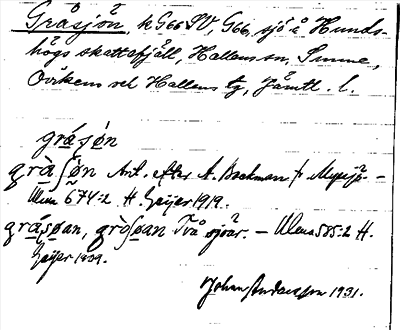 Gråsjön, k G66 SV, G66, sjö å Hunds-
högs skattefjäll, Hallens sn, Sunne,
Oviken och Hallens tg, Jämtl. l.
gråsøn
grå̀ʃøn Ant. efter A. Backman fr Mysjö. —
Ulma 674:2 H. Geijer 1919.
gråsøan, grå̀ʃøan Två sjöar. — Ulma 585:2 H.
Geijer 1909.
Johan Andersson 1931.